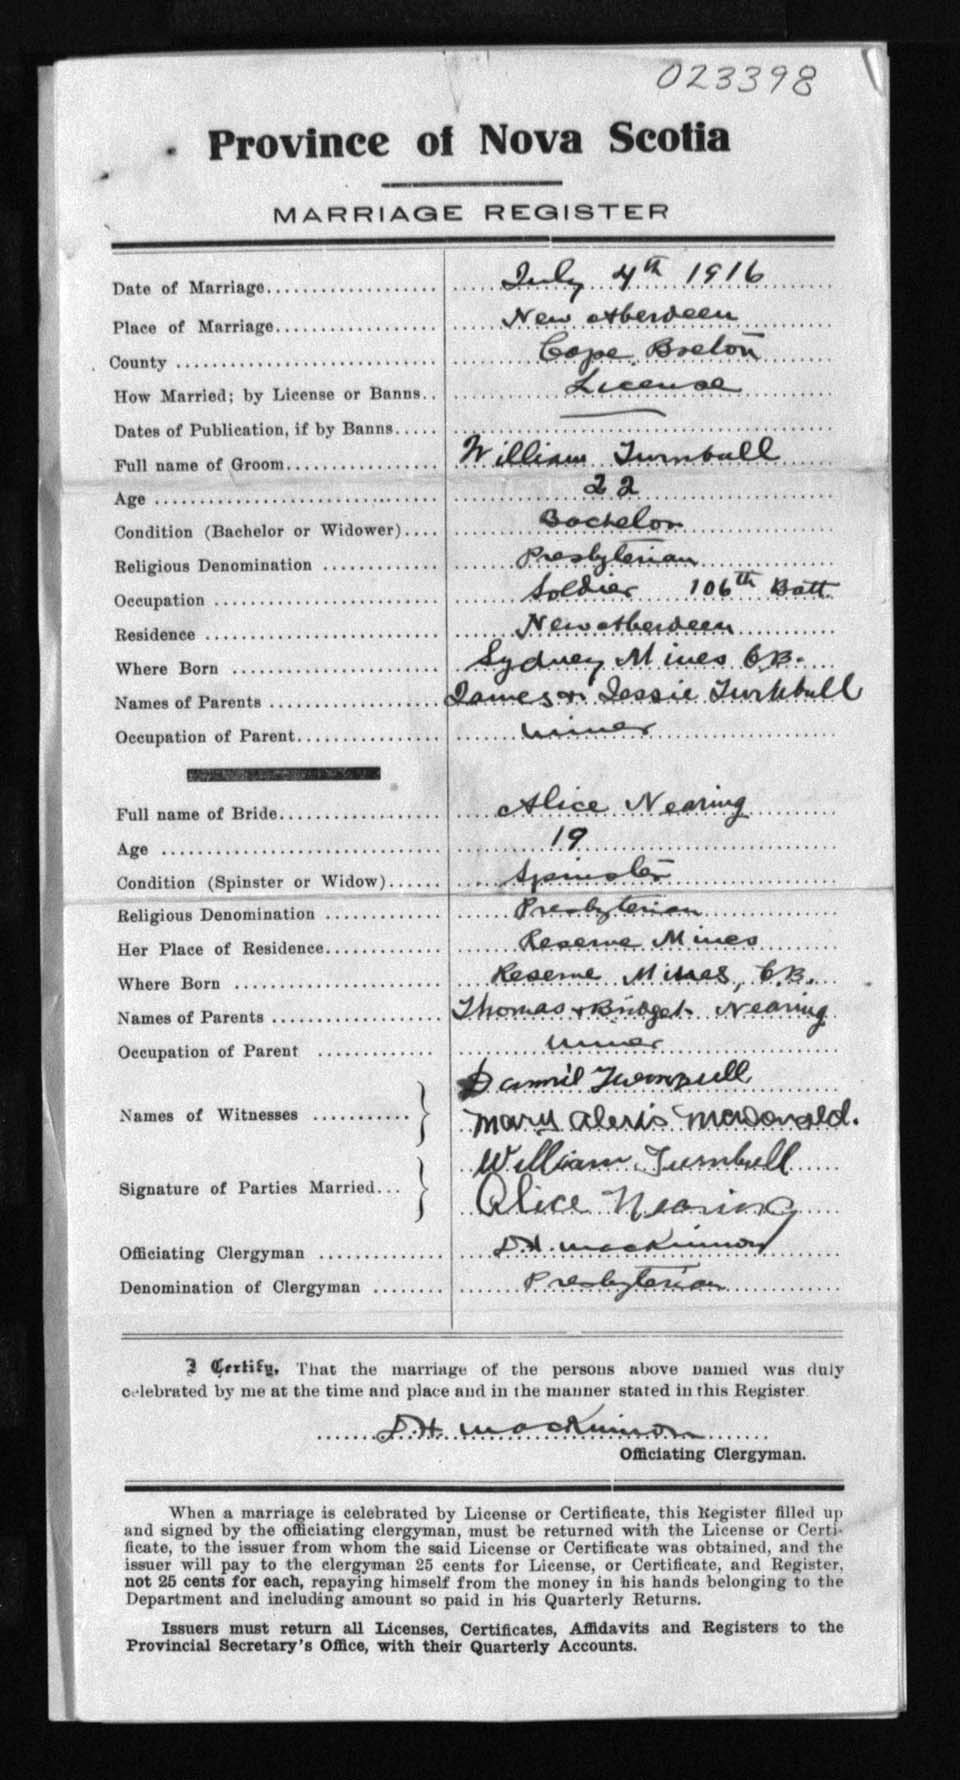 023398
Province of Nova Scotia
MARRIAGE REGISTER
Date of Marriage................... July 4th 1916
Place of Marriage.................. New Aberdeen
County ............................ Cape Breton
How Married; by License or Banns.. License
Dates of Publication, if by Banns.....
Full name of Groom................. William Turnbull
Age ............................... 22
Condition (Bachelor or Widower).... Bachelor
Religious Denomination ............ Presbyterian
Occupation ........................ Soldier 106th Batt.
Residence ......................... New Aberdeen
Where Born ........................ Sydney Mines C.B.
Names of Parents .................. James & Jessie Turnbull
Occupation of Parent............... miner
Full name of Bride................. Alice Nearing
Age ............................... 19
Condition (Spinster or Widow)...... Spinster
Religious Denomination ............ Presbyterian
Her Place of Residence............. Reserve Mines
Where Born ........................ Reserve Mines, C.B.
Names of Parents .................. Thomas & Bridget Nearing
Occupation of Parent .............. miner
Turnbull
Names of Witnesses ........... Mary Alexis McDonald.
William Turnbull
Signature of Parties Married... Alice Nearing
Officiating Clergyman ............. D.H. MacKinnon
Denomination of Clergyman ........ Presbyterian
I Certify, That the marriage of the persons above named was duly
celebrated by me at the time and place and in the manner stated in this Register.
D.H. MacKinnon
Officiating Clergyman.
When a marriage is celebrated by License or Certificate, this Register filled up
and signed by the officiating clergyman, must be returned with the License or Certi-
ficate, to the issuer from whom the said License or Certificate was obtained, and the
issuer will pay to the clergyman 25 cents for License, or Certificate, and Register,
not 25 cents for each, repaying himself from the money in his hands belonging to the
Department and including amount so paid in his Quarterly Returns.
Issuers must return all Licenses, Certificates, Affidavits and Registers to the
Provincial Secretary's Office, with their Quarterly Accounts.